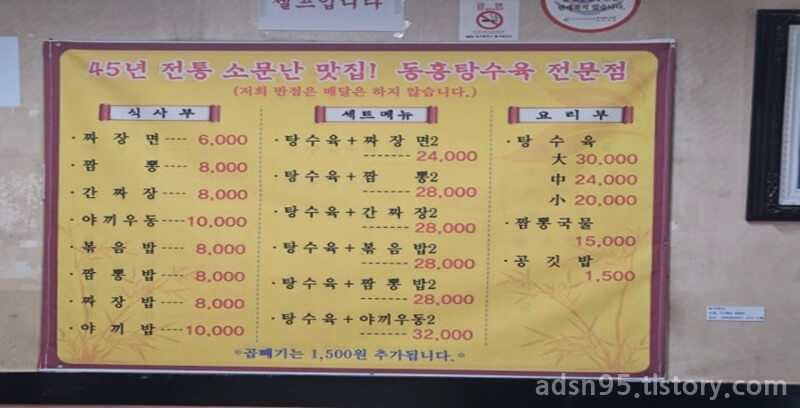 셀프입니다
금연
45년 전통 소문난 맛집! 동흥탕수육 전문점
(저희 반점은 배달은 하지 않습니다.)
식사부
·짜장면---- 6,000
·짬뽕---- 8,000
·간짜장---- 8,000
·야끼우동----10,000
·볶음밥---- 8,000
·짬뽕밥---- 8,000
·짜장밥---- 8,000
·야끼밥----10,000
세트메뉴
·탕수육+짜장면2
------- 24,000
·탕수육+짬뽕2
------- 28,000
·탕수육+간짜장2
------- 28,000
·탕수육+볶음밥2
------- 28,000
·탕수육+짬뽕밥2
------- 28,000
·탕수육+야끼우동2
------- 32,000
요리부
·탕수육
大 30,000
中 24,000
小 20,000
·짬뽕국물
15,000
·공깃밥
1.500
*곱빼기는 1,500원 추가됩니다.*
adsn95.tistory.com